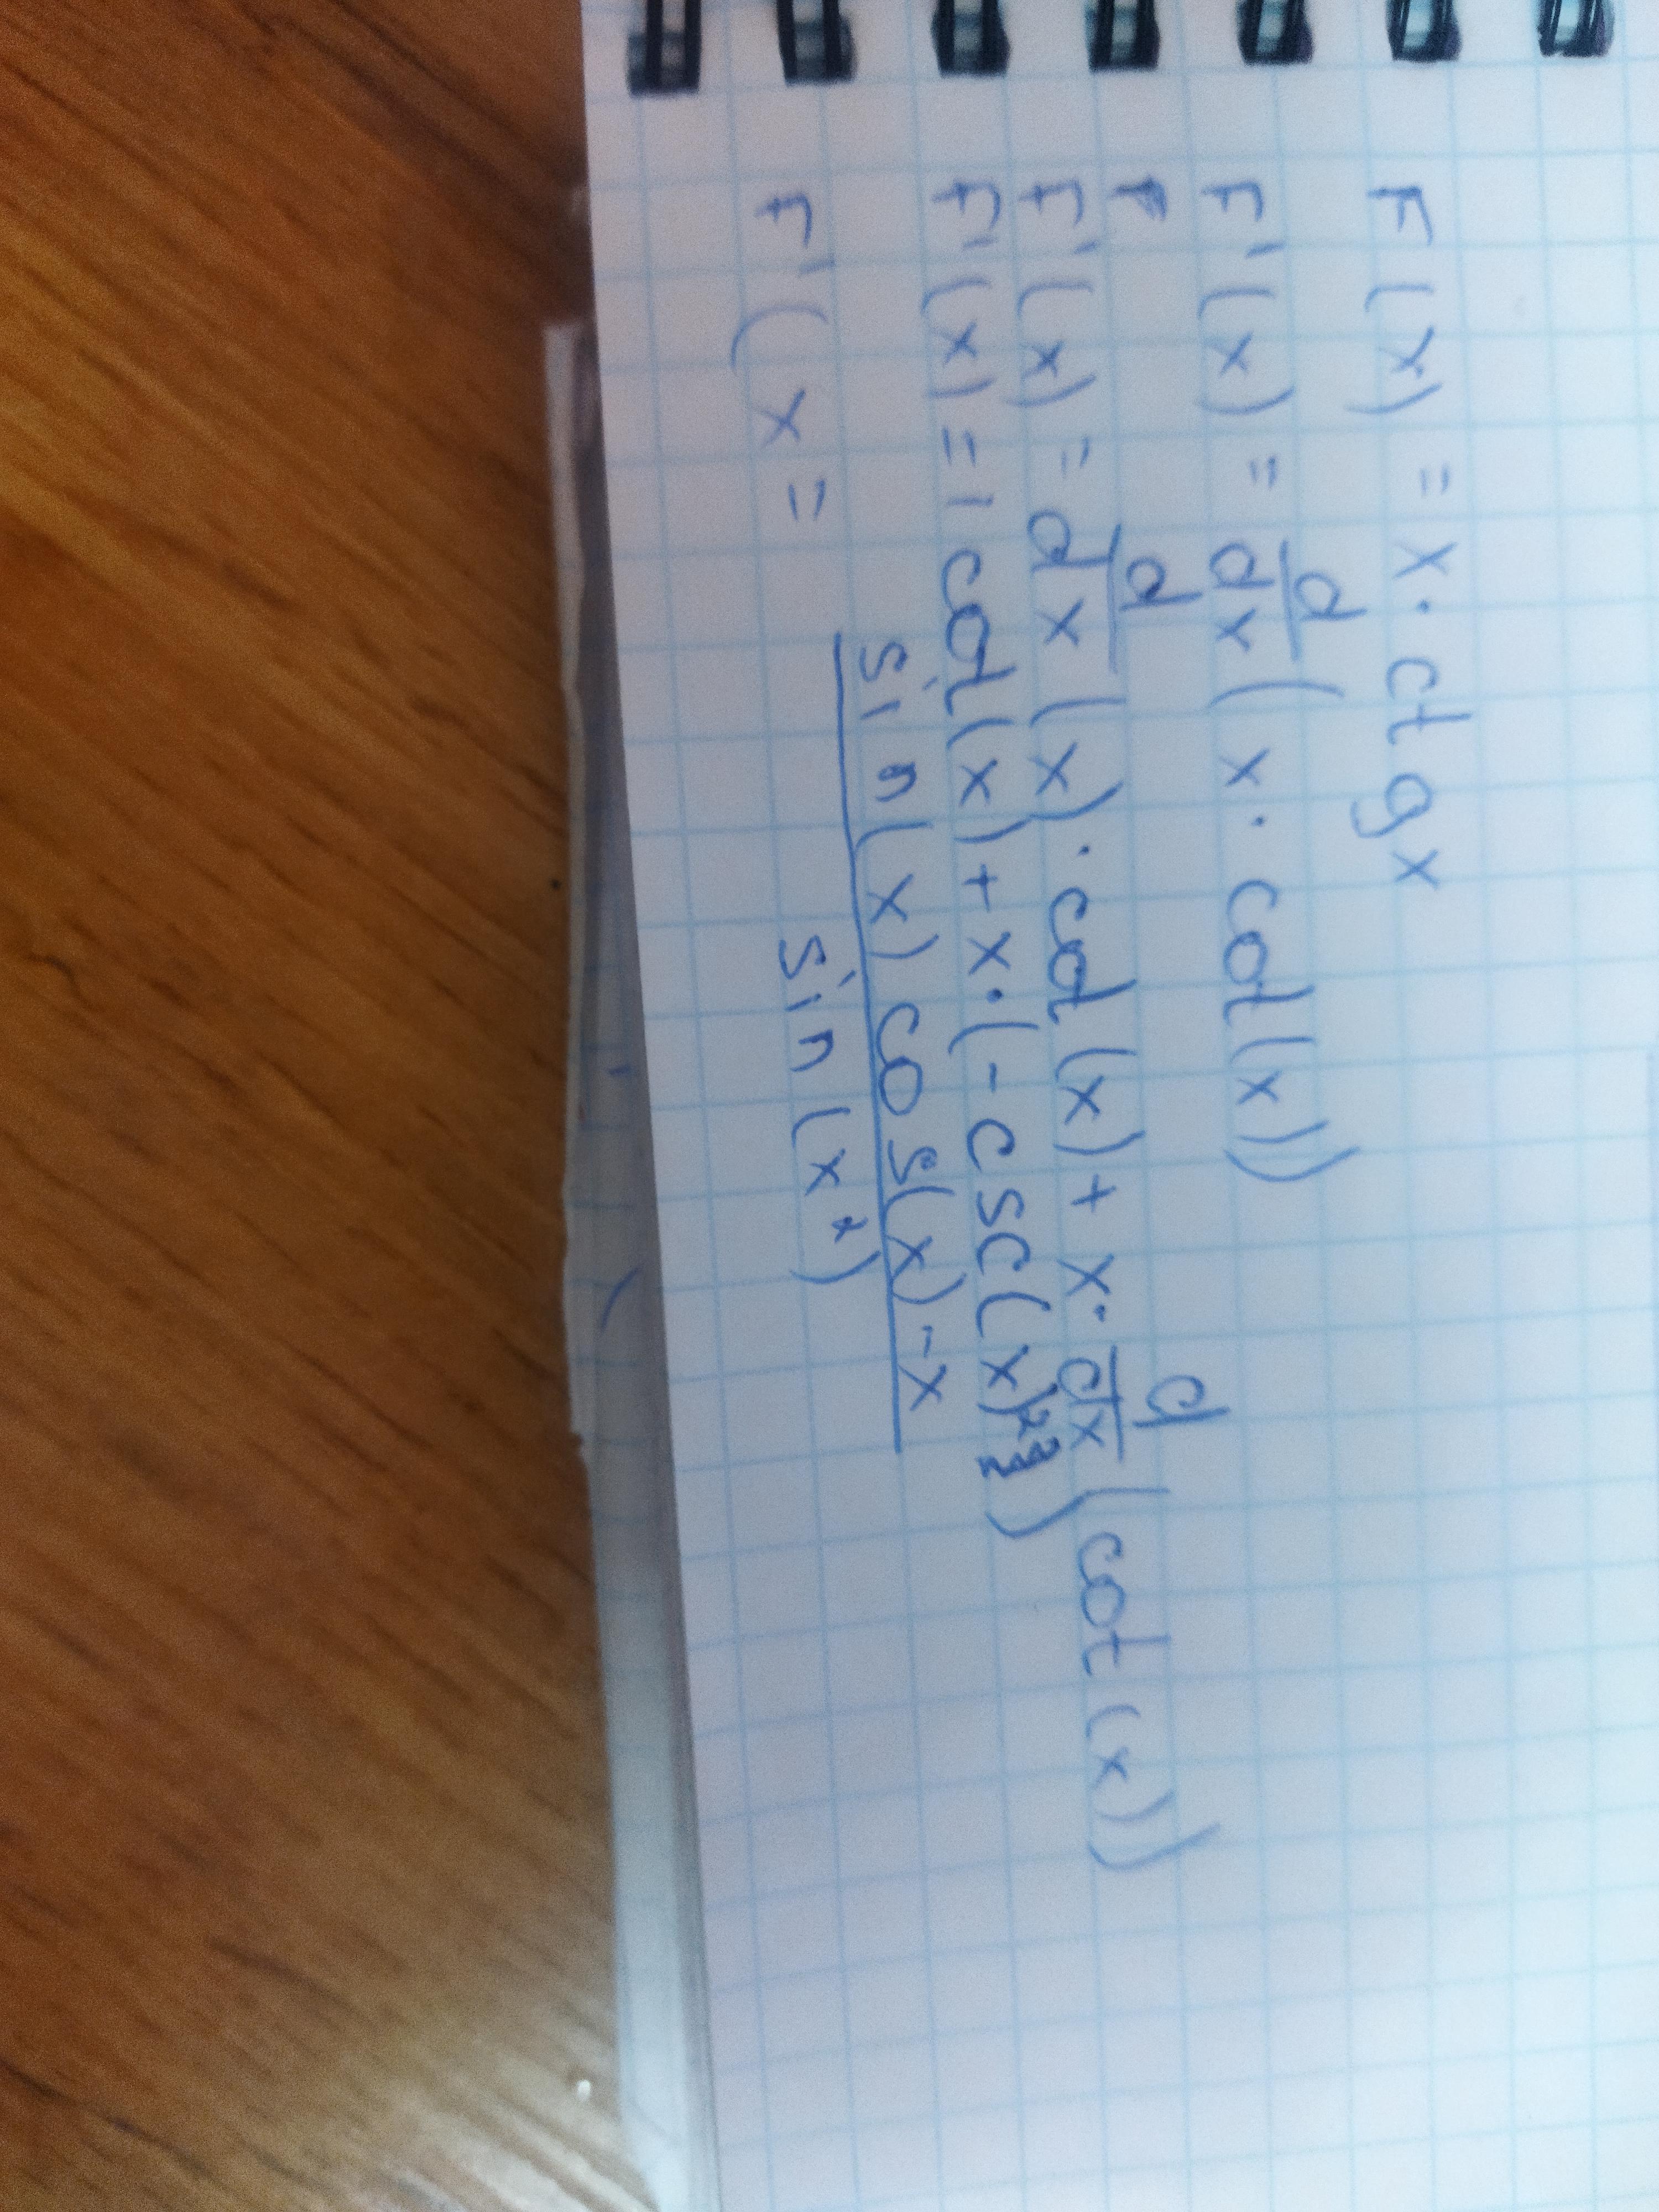 F(x) = x · ctgx
F'(x) = d/dx (x · cot(x))
F
F'(x) = d/dx (x) · cot(x) + x · d/dx (cot(x))
F'(x) = 1 cot(x) + x · (-csc(x)²)
F'(x = sin(x)cos(x)-x / sin(x²)